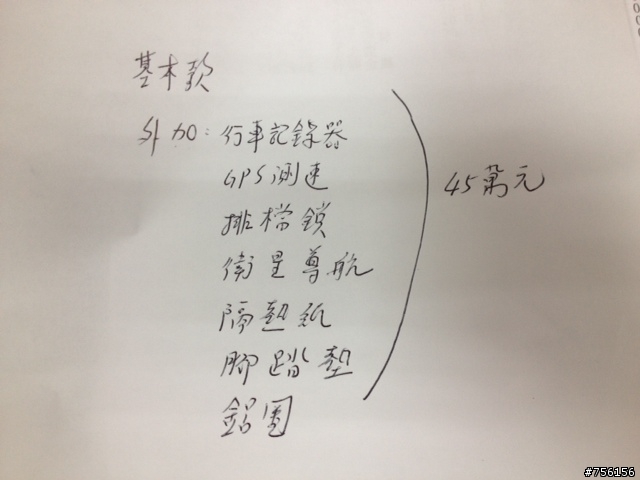 基本款
外加：行車記錄器
GPS測速
排檔鎖
衛星導航
隔熱紙
腳踏墊
鋁圈
45萬元
#756156